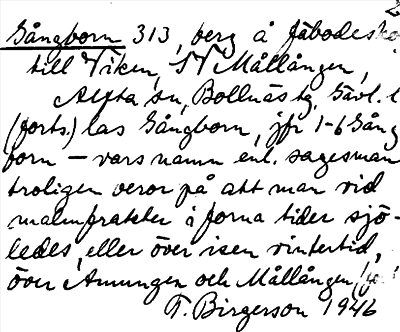 Gångborn 313, berg å fäbodesko
till Viken, SV Mållången,
Alfta sn, Bollnäs tg, Gävl. l
(forts.) las Gångborn, jfr 1-6 Gång
born – vars namn enl. sagesman
troligen beror på att man vid
malmfrakter i forna tider sjö-
ledes, eller över isen vintertid,
över Amungen och Mållången
T. Birgerson 1946